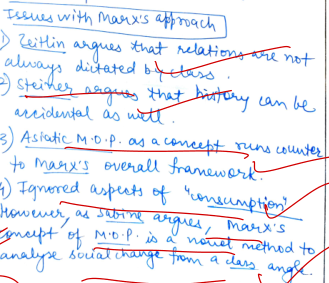 Issues with Marx's approach
1) Zeitlin argues that relations are not
always dictated by class.
2) Steiner argues that history can be
accidental as well.
3) Asiatic M.O.P. as a concept runs counter
to Marx's overall framework.
4) Ignored aspects of "consumption"
However, as Sabine argues, Marx's
concept of M.O.P. is a novel method to
analyse social change from a class angle.